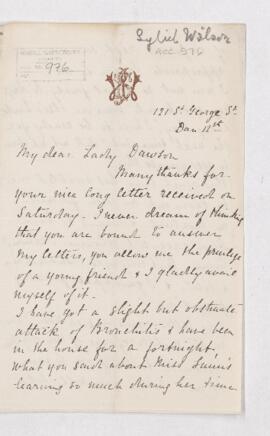 Wilson
ACC 976
976
121 St George St
Jan 18th
My dear Lady Dawson
Many thanks for
your nice long letter received on
Saturday. I never dream of thinking
that you are bound to answer
my letters, you allow me the privilege
of a young friend & I gladly avail
myself of it.
I have got a slight but obstinate
attack of Bronchitis & have been
in the house for a fortnight,
what you said about Miss
learning so much during her time